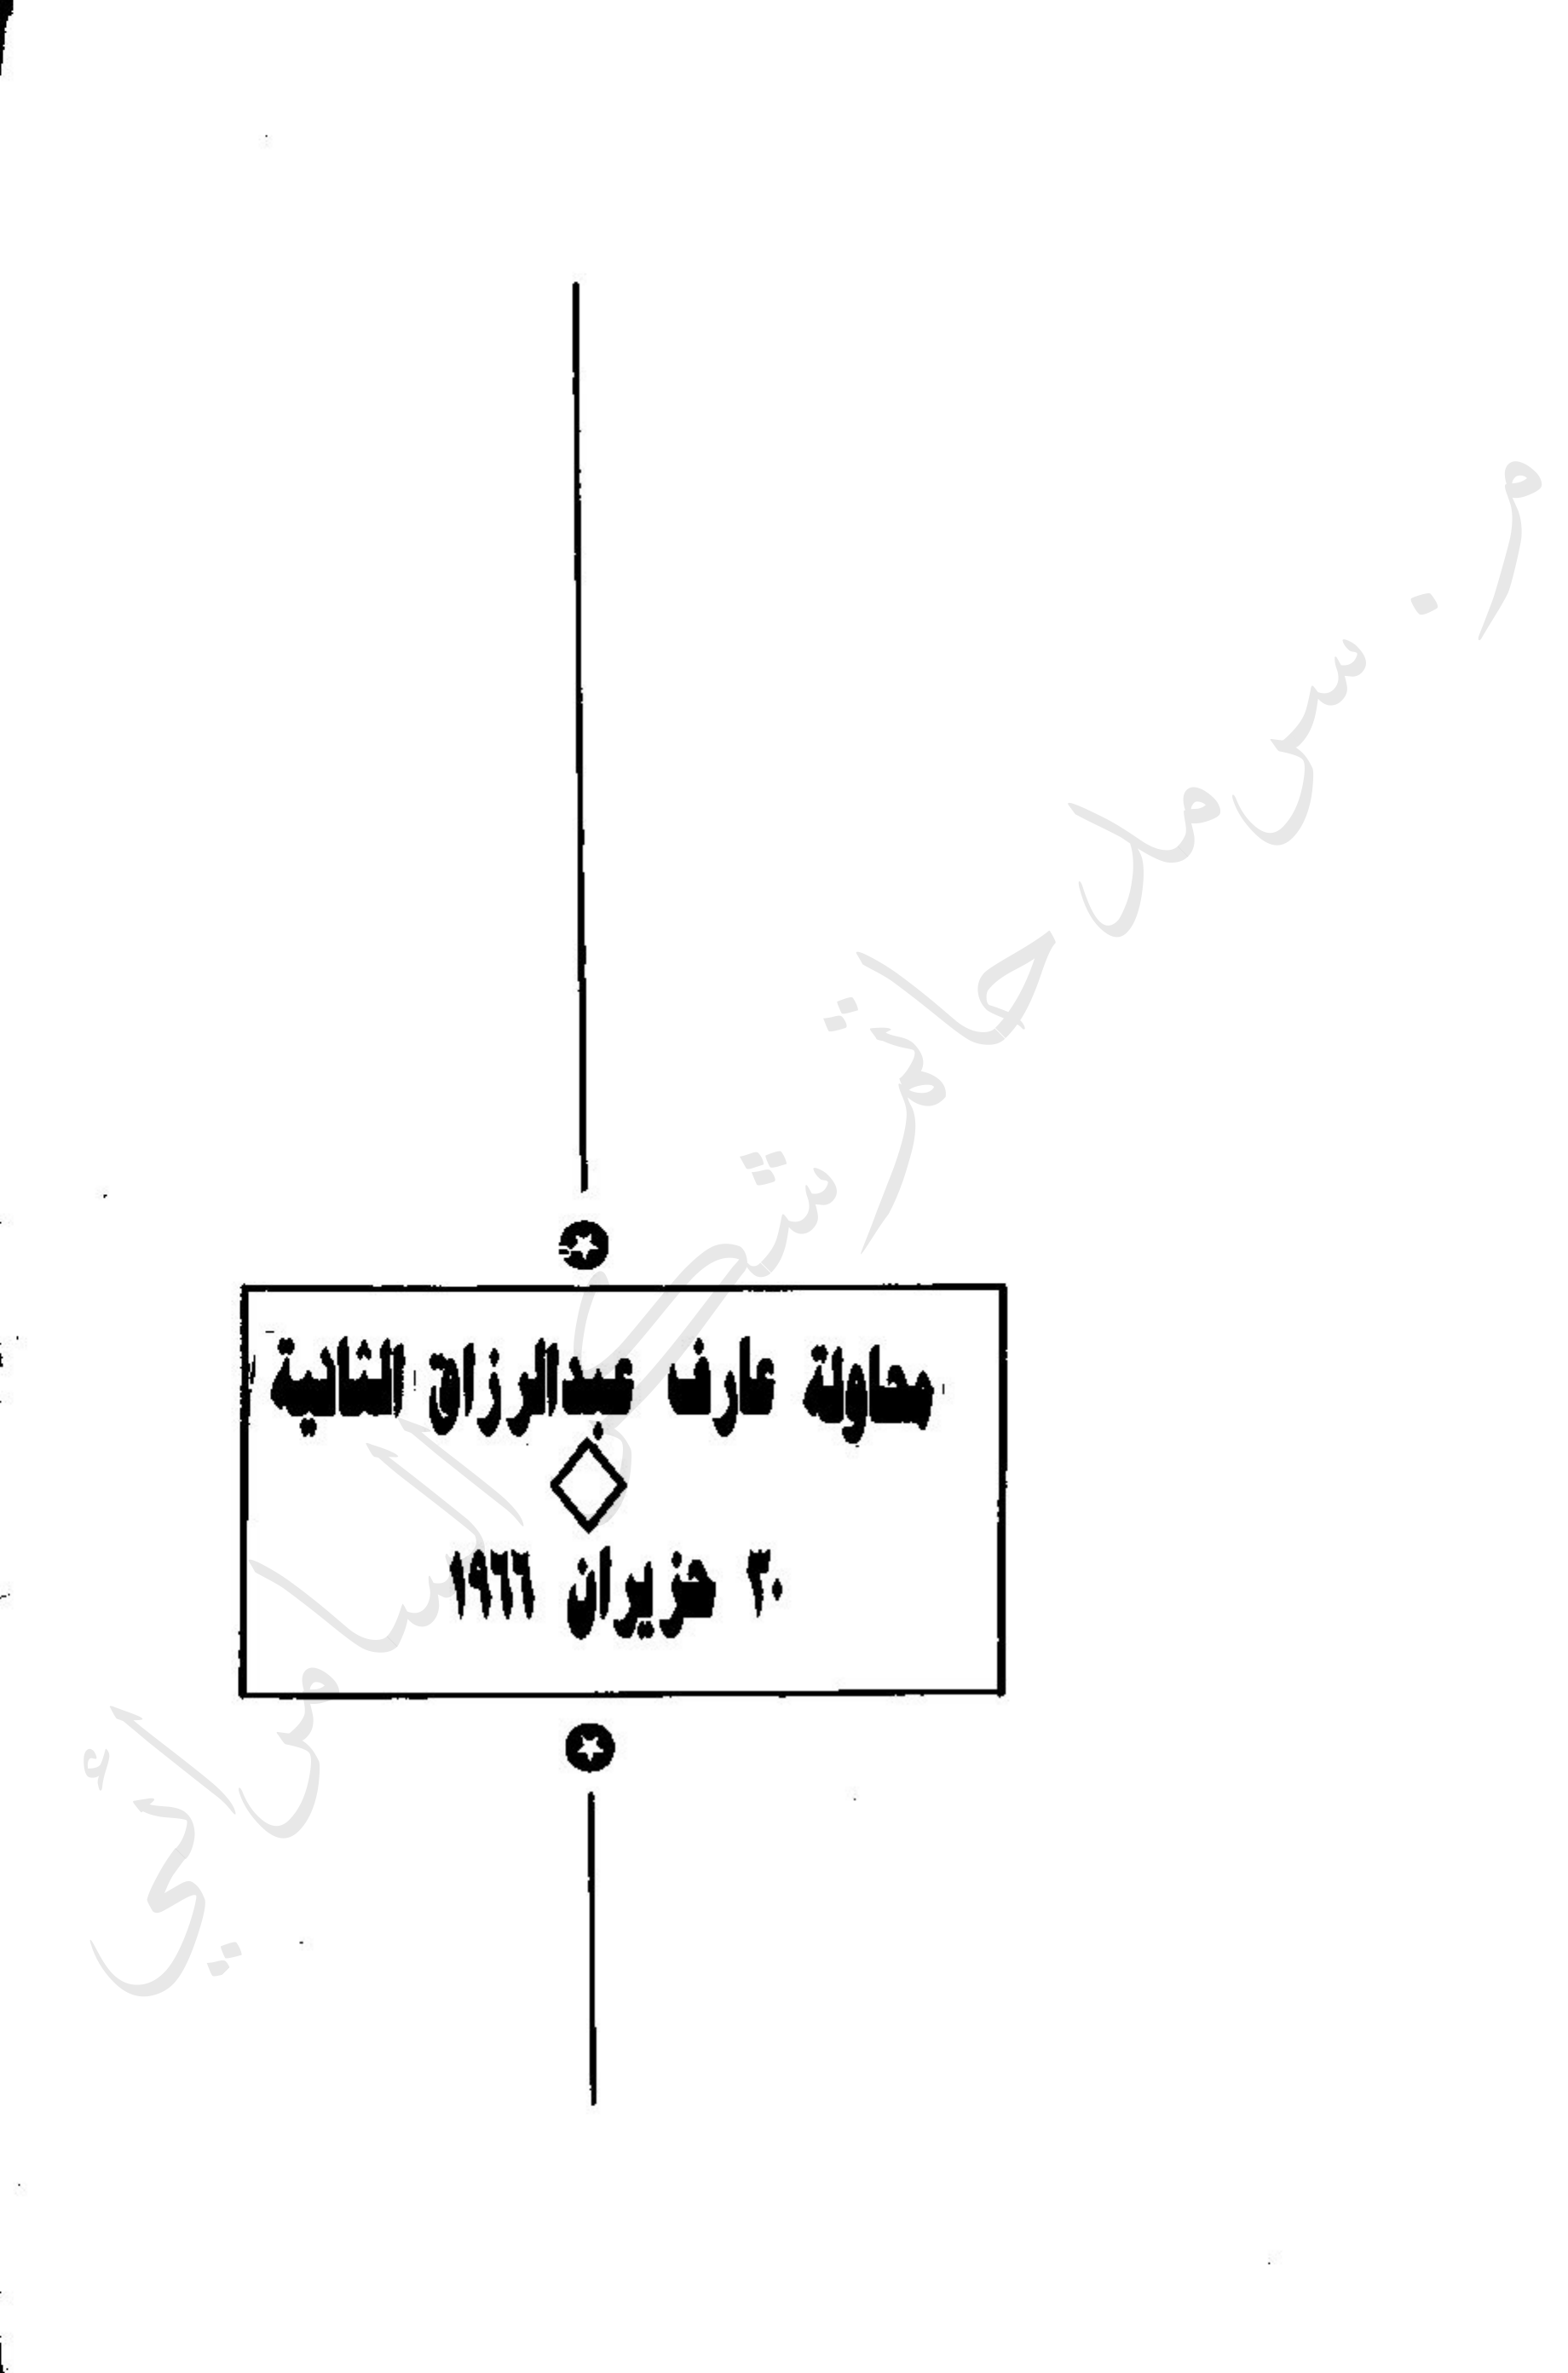 محاولة عارف عبدالرزاق الثانية
٣٠ حزيران ١٩٦٦
م. سرمد حاتم شكر السامرائي